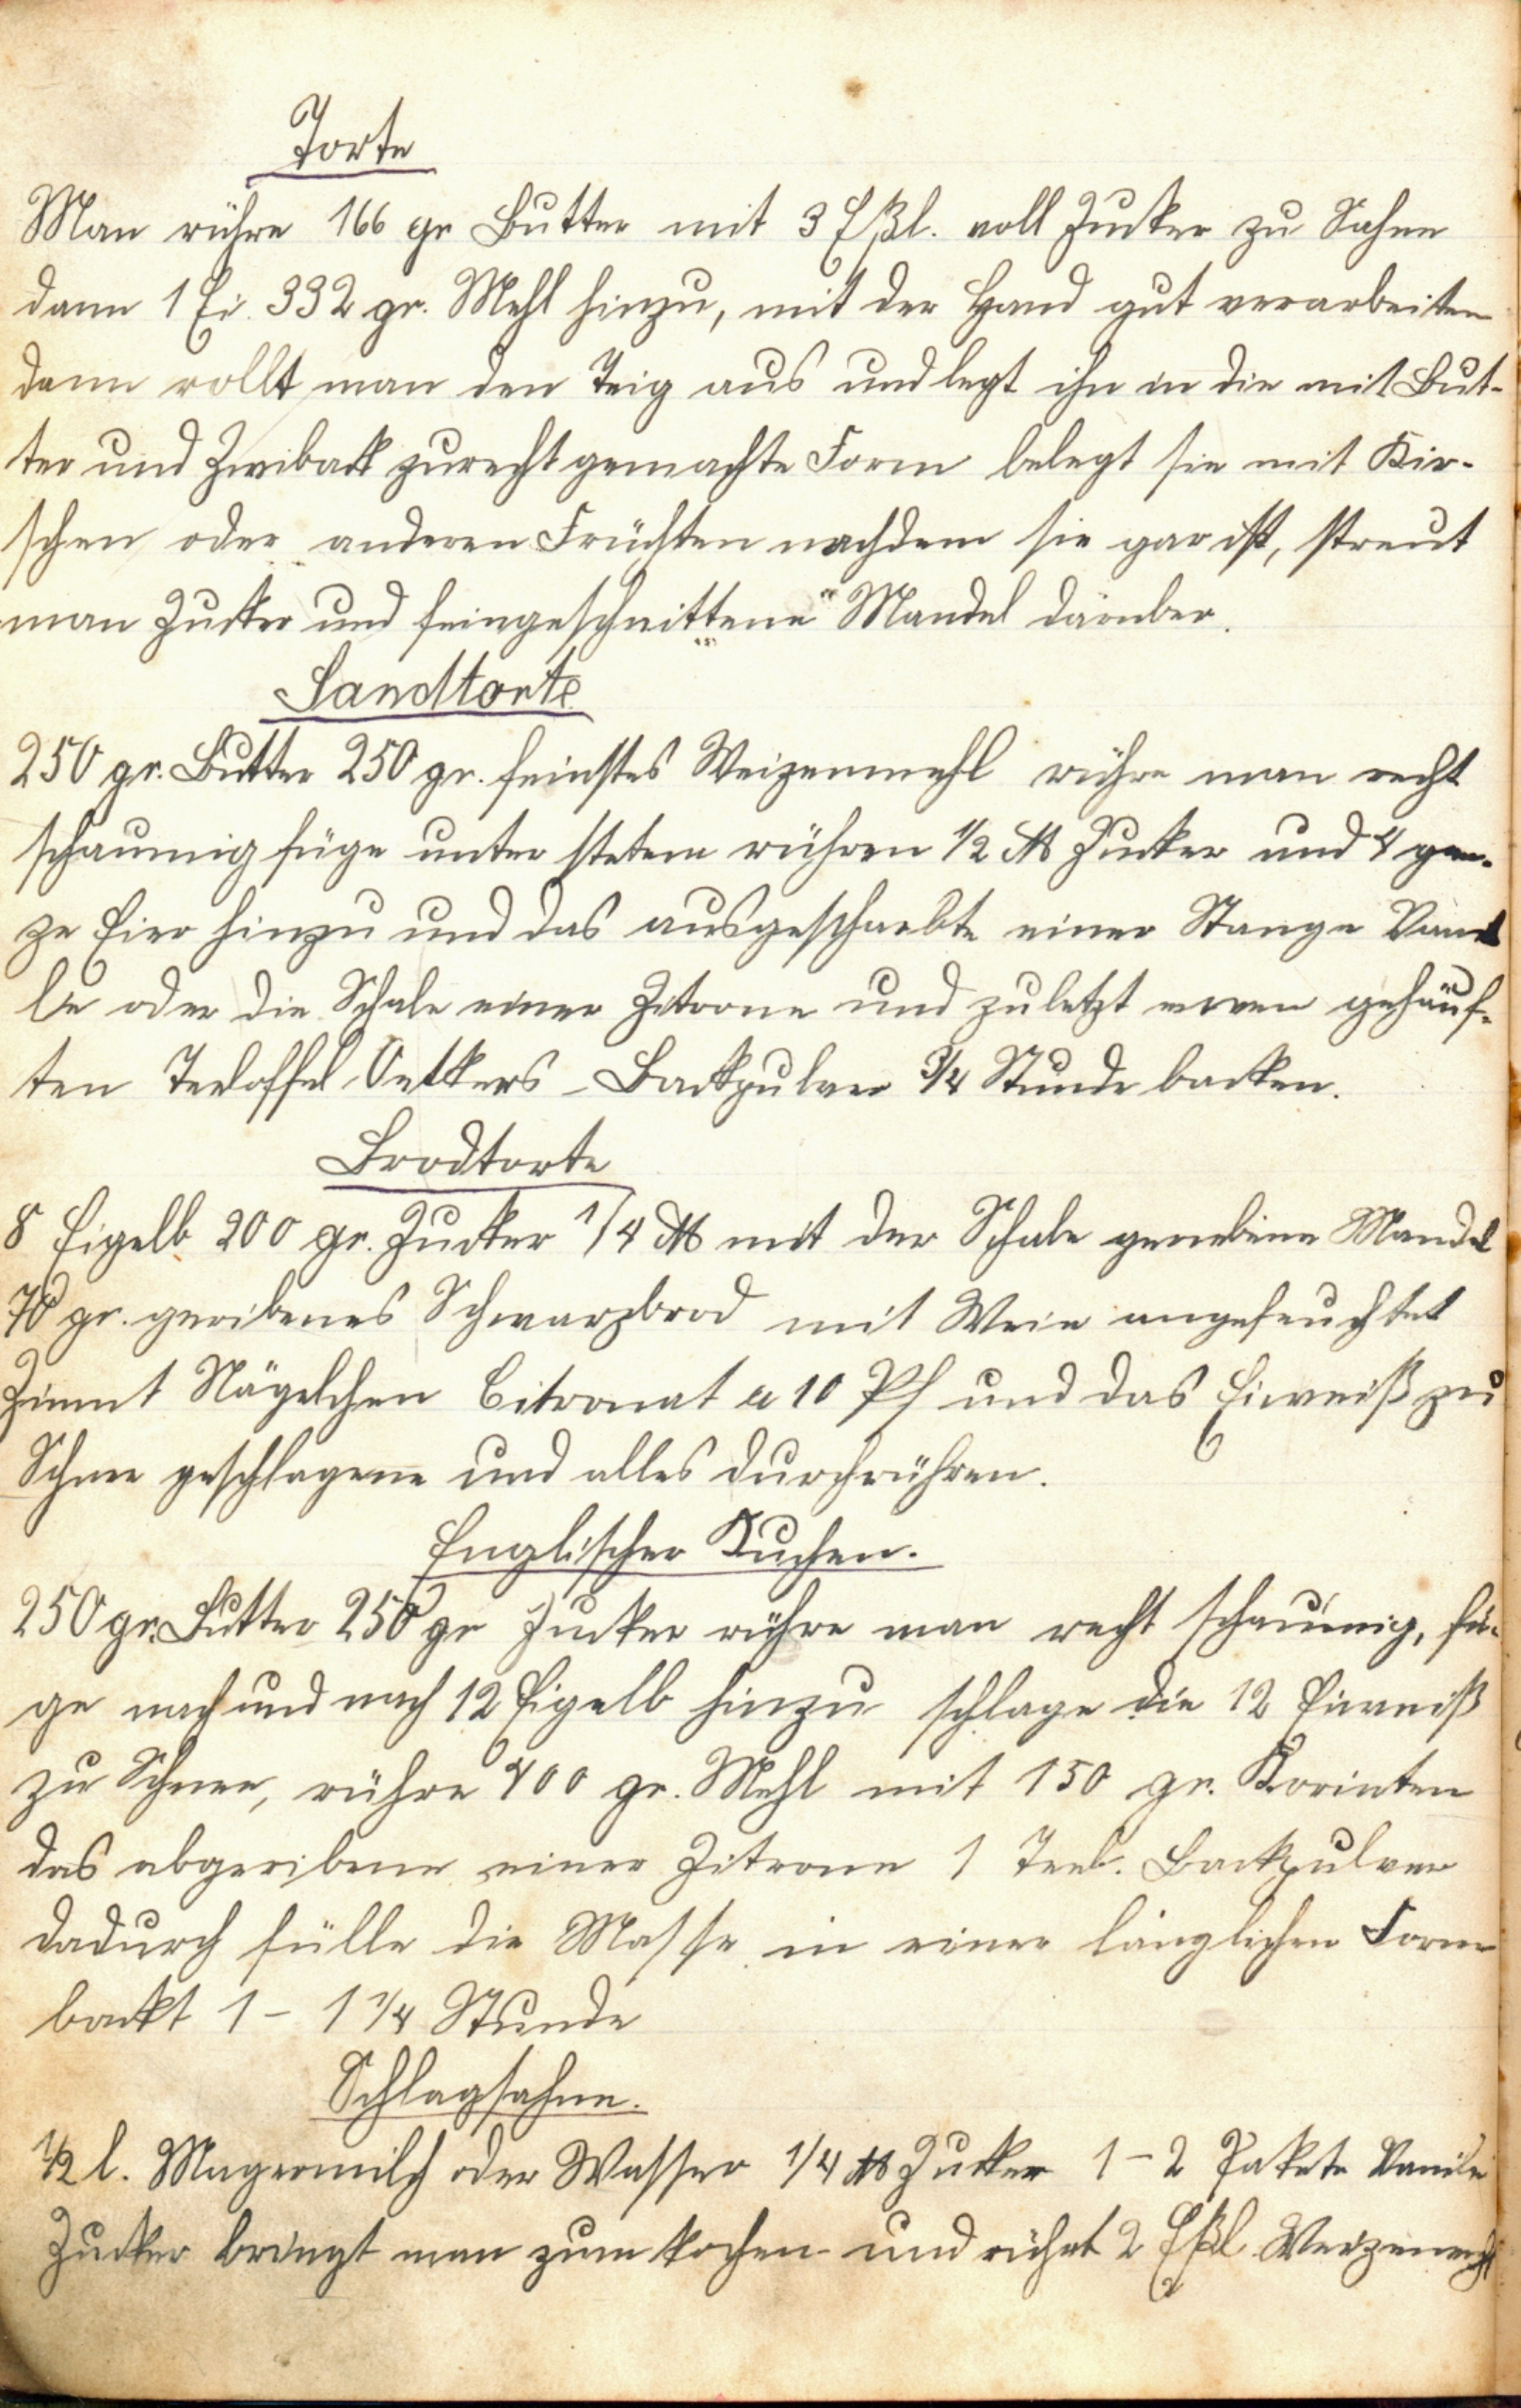 Torte
Man rühre 166 gr Butter mit 3 Eßl. voll Zucker zu Sahne
dann 1 Ei. 332 gr. Mehl hinzu, mit der Hand gut verarbeiten
dann rollt man den Teig aus und legt ihn in die mit But-
ter und Zwiback zurecht gemachte Form belegt sie mit Kir-
schen oder anderen Früchten nachdem sie gar ist, streut
man Zucker und feingeschnittene Mandel darüber.
Sandtorte
250 gr. Butter 250 gr. feinstes Weizenmehl rühre man recht
schaumig füge unter stetem rühren 1/2 ℔ Zucker und 4 gan-
ze Eier hinzu und das ausgeschabte einer Stange Vanil
le oder die Schale einer Zitrone und zuletzt einen gehäuf-
ten Teeloffel Oetkers-Backpulver 3/4 Stunde backen.
Brodtorte
8 Eigelb 200 gr. Zucker 1/4 ℔ mit der Schale geriebene Mandel
70 gr. geribenes Schwarzbrod mit Wein angefeuchtet
Zimmt Nägelchen Citronat a 10 Pf und das Eiweiß zu
Schnee geschlagene und alles durchrühren.
Englischer Kuchen.
250 gr. Butter 250 gr Zucker rühre man recht schaumig, fü-
ge nach und nach 12 Eigelb hinzu schlage die 12 Eiweiß
zu Schnee, rühre 400 gr. Mehl mit 150 gr. Korinten
das abgeribene einer Zitrone 1 Teel. Backpulver
dadurch fülle die Masse in einer länglichen Form
backt 1 - 1 1/4 Stunde
Schlagsahne.
1/2 l. Magermilch oder Wasser 1/4 ℔ Zucker 1-2 Pakete Vanile
Zucker bringt man zum kochen und rührt 2 Eßl Weizenmehl